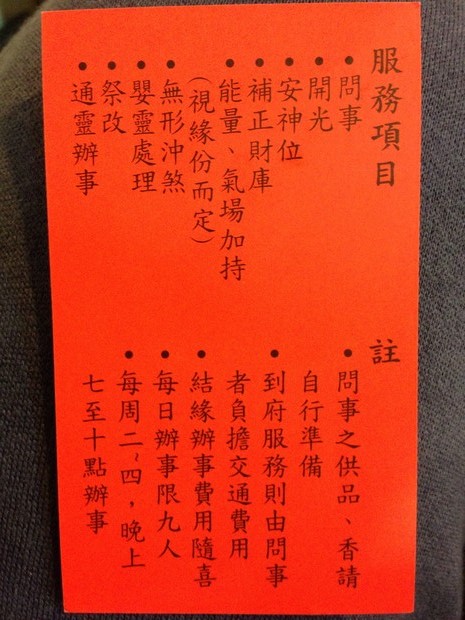 服務項目
•問事
•開光
•安神位
•補正財庫
•能量、氣場加持
(視緣份而定)
•無形沖煞
•嬰靈處理
•祭改
•通靈辦事
註
•問事之供品、香請
自行準備
•到府服務則由問事
者負擔交通費用
•結緣辦事費用隨喜
•每日辦事限九人
•每周二~四，晚上
七至十點辦事